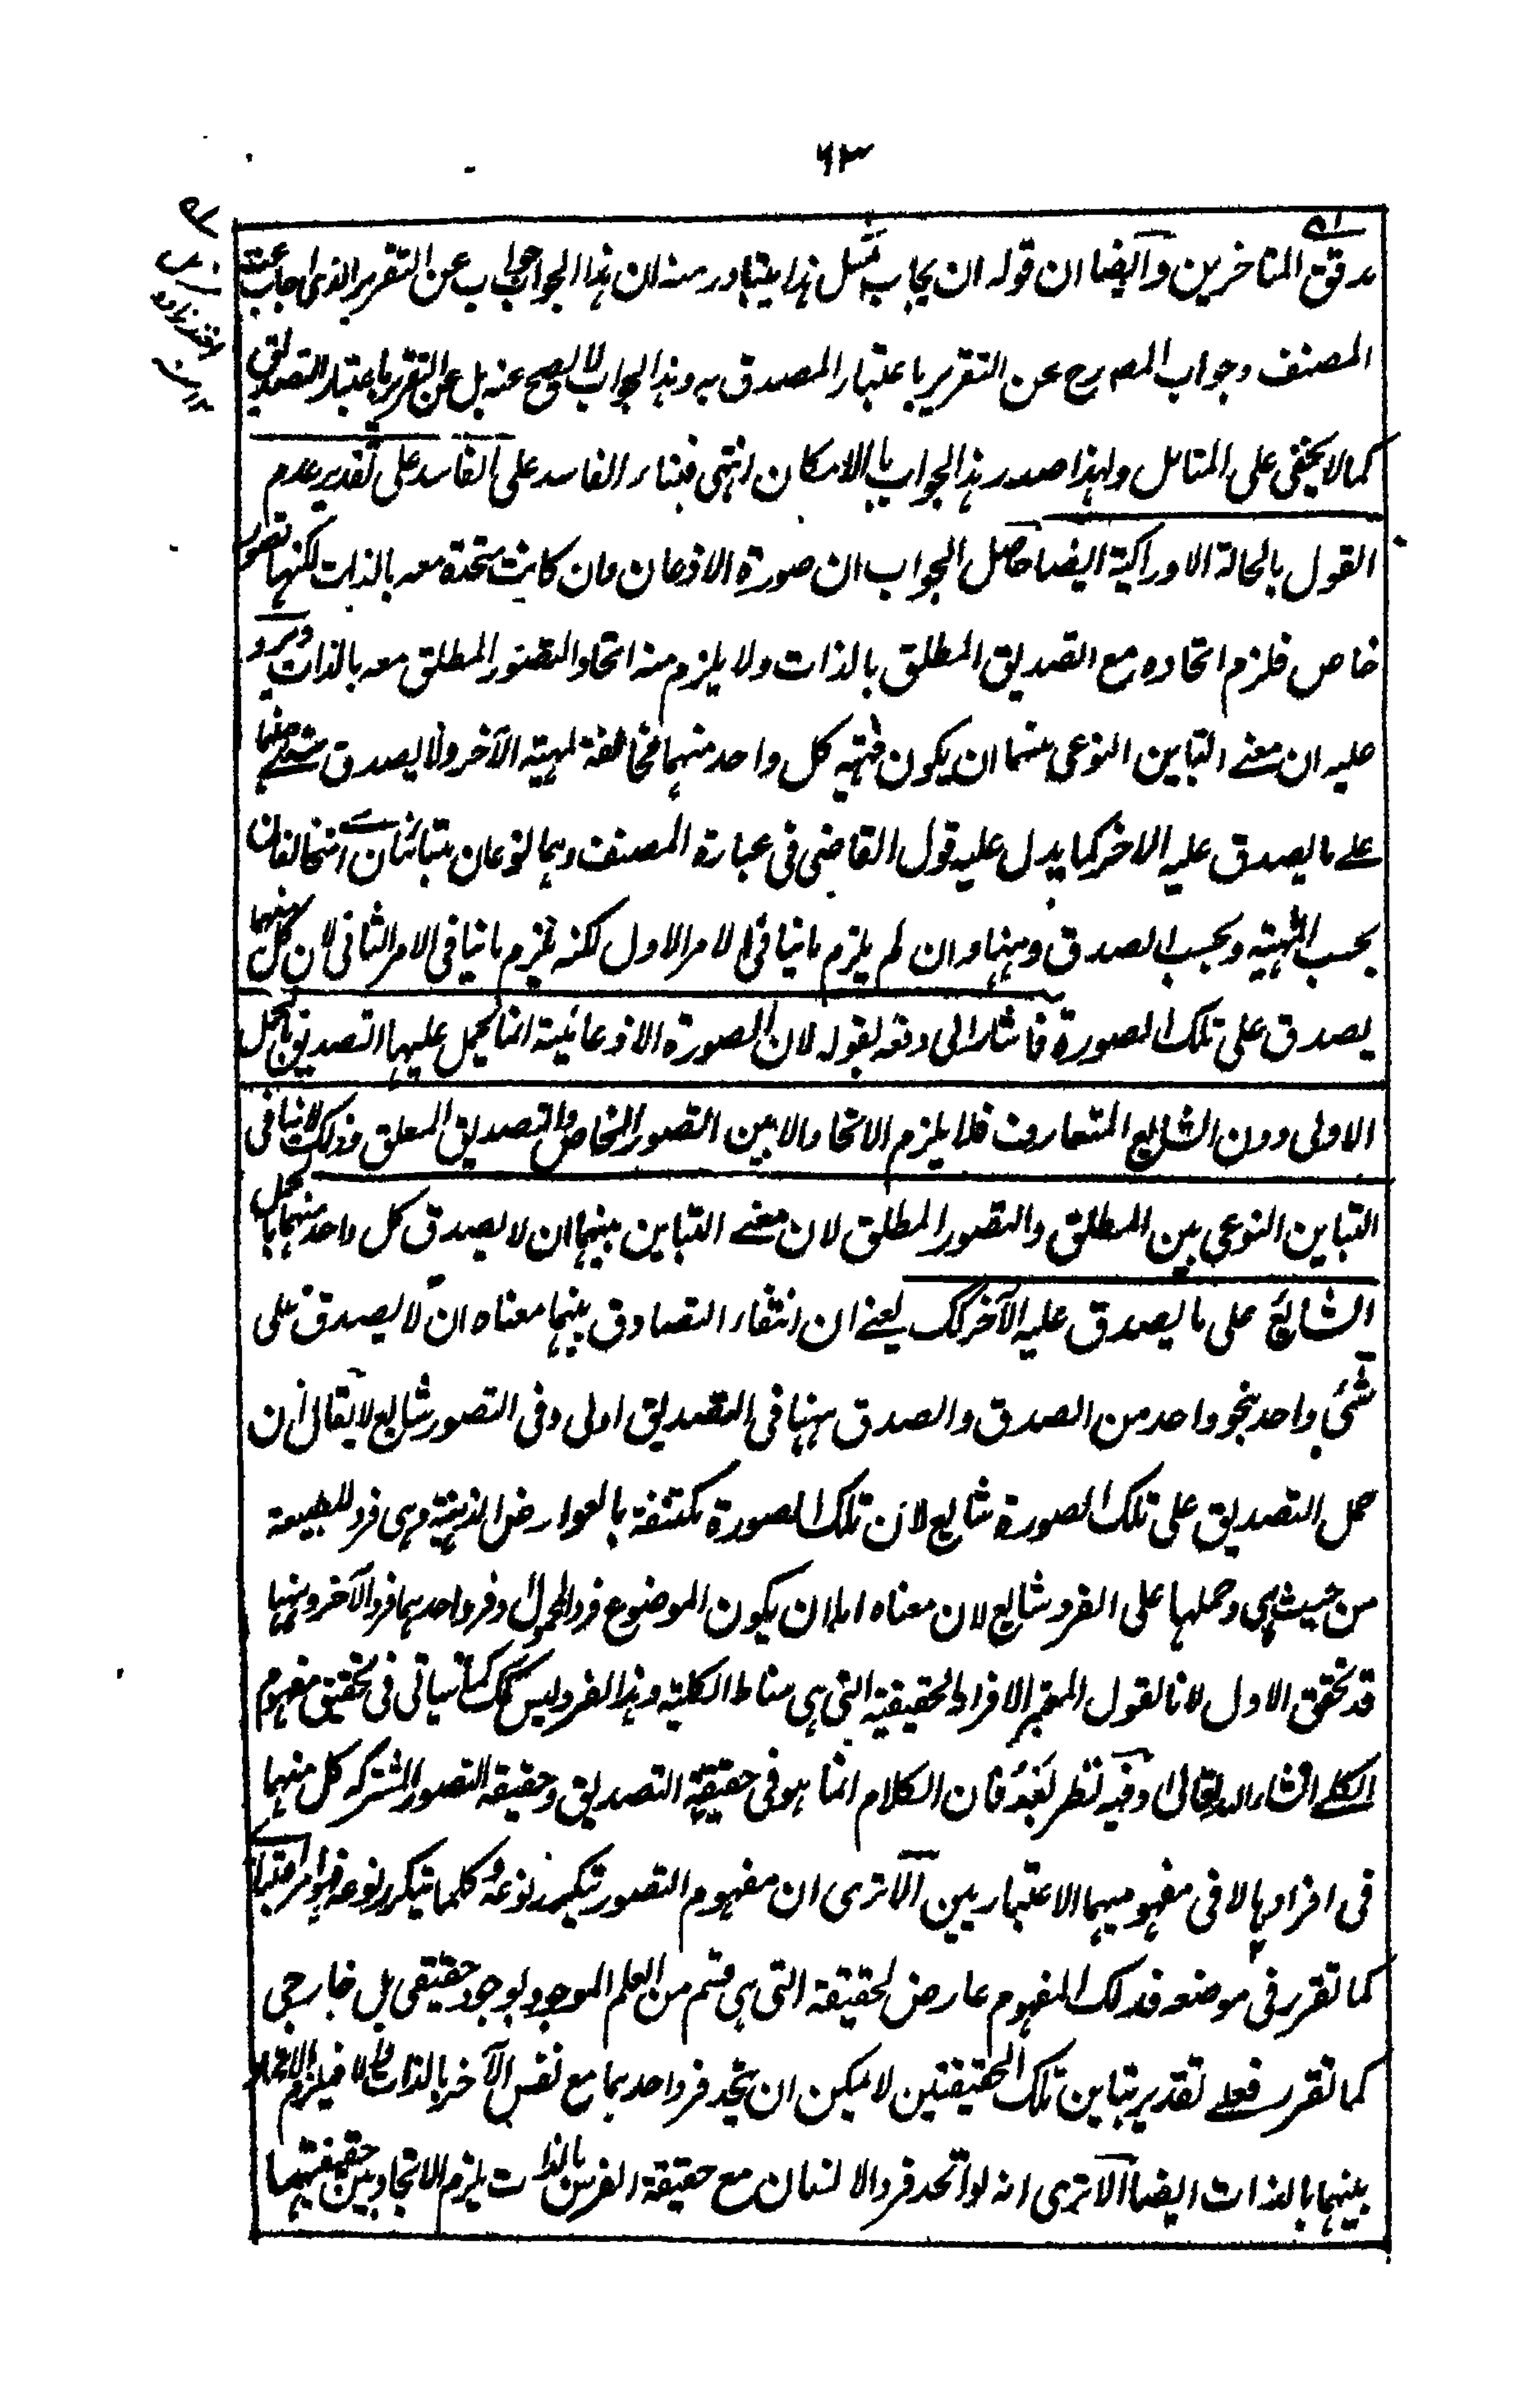 ٦٣
مدقق المتاخرين وايضا ان قوله ان يجاب بمثل هذا يتبادر منه ان هذا الجواب جواب عن التقرير الذى اجاب عنه
المصنف وجواب المصرح عن التقرير باعتبار المصدق به وهذا الجواب لا يصح عنه بل عن التقرير باعتبار التصديق
كما لا يخفى على المتامل ولهذا صدر هذا الجواب بالامكان انتهى فبناء الفاسد على الفاسد على تقدير عدم
القول بالحالة الادراكية ايضا حاصل الجواب ان صورة الاذعان وان كانت متحدة معه بالذات لكنها تصور
خاص فلزم اتحاده مع التصديق المطلق بالذات ولا يلزم منه اتحاد التصور المطلق معه بالذات ويرد
عليه ان معنے التباين النوعى بينهما ان يكون مهية كل واحد منهما مخالفة لمهية الآخر ولا يصدق شئے منهما
علے ما يصدق عليه الاخر كما يدل عليه قول القاضى فى عبارة المصنف وهما نوعان متبائنان اے متخالفان
بحسب المهية وبحسب الصدق وههنا وان لم يلزم ما ينافى الامر الاول لكنه يلزم ما ينافى الامر الثانى لان كل منهما
يصدق على تلك الصورة فاشار الى دفعه بقوله لان الصورة الاذعانية انما يحمل عليها التصديق بالحمل
الاولى دون الشايع المتعارف فلا يلزم الاتحاد الا بين التصور الخاص والتصديق المطلق وذلك لا ينافى
التباين النوعى بين المطلق والتصور المطلق لان معنے التباين بينهما ان لا يصدق كل واحد منهما بالحمل
الشايع على ما يصدق عليه الآخر كك يعنے ان انتفاء التصادق بينهما معناه ان لا يصدق على
شئ واحد بنحو واحد من الصدق والصدق ههنا فى التصديق اولى وفى التصور شايع لا يقال ان
حمل التصديق على تلك الصورة شايع لان تلك الصورة مكتنفة بالعوارض الذهنية وهى فرد للطبيعة
من حيث هى وحملها على الفرد شايع لان معناه اما ان يكون الموضوع فرد المحمول او فرد احدهما فرد الآخر وههنا
قد تحقق الاول لانا نقول المعتبر الافراد الحقيقية التى هى مناط الكلية وهذا الفرد ليس كك كما سياتى فى تحقيق مفهوم
الكلے انشاء الله تعالى وفيه نظر بعد فان الكلام انما هو فى حقيقة التصديق وحقيقة التصور المشتركة كل منهما
فى افرادها لا فى مفهوميهما الاعتباريين الا ترى ان مفهوم التصور يتكرر نوعه وكلما يتكرر نوعه فهو امر اعتبارى
كما تقرر فى موضعه فذلك المفهوم عارض لحقيقة التى هى قسم من العلم الموجود بوجود حقيقى بل خارجى
كما تقرر فعلے تقدير تباين تلك الحقيقتين لا يمكن ان يتحد فرد احدهما مع نفس الآخر بالذات والا فيلزم الاتحاد
بينهما بالذات ايضا الا ترى انه لو اتحد فرد الانسان مع حقيقة الفرس بالذات يلزم الاتحاد بين حقيقتهما